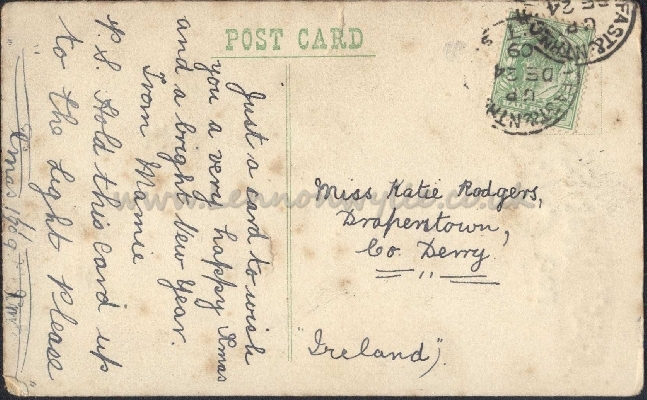 POST CARD
Just a card to wish
you a very happy Xmas
and a bright New Year.
From Mamie
P.S. Hold this card up
to the light please
Xmas 1909
Miss Katie Rodgers,
Draperstown,
Co Derry
"Ireland".
FAST & NTH.
GP
DE 24
09